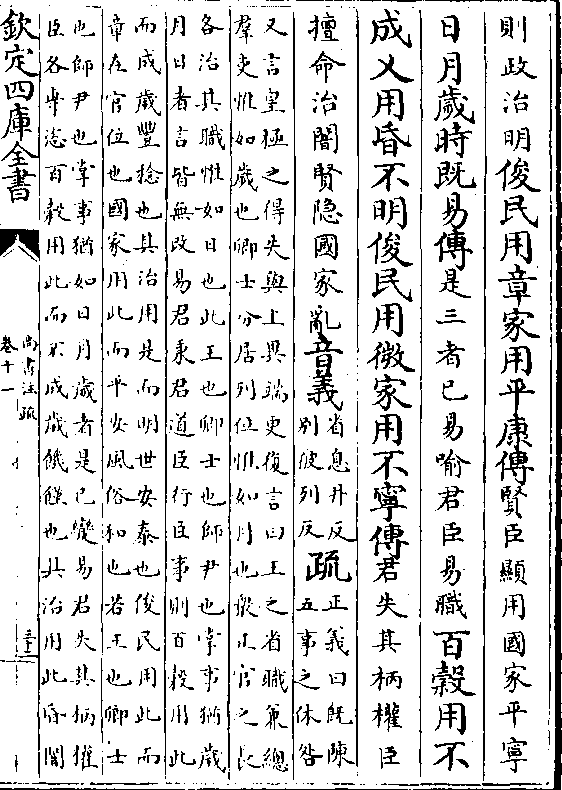 則政治明俊民用章家用平康傳賢臣顯用國家平寧
日月歲時既易傳是三者已易喻君臣易職百穀用不
成乂用昏不明俊民用微家用不寧傳君失其柄權臣
擅命治闇賢隐國家亂音義省息井反
别彼列反疏正義曰既陳
五事之休咎
又言皇極之得失與上異端更復言曰王之省職兼緫
羣吏惟如歲也卿士分居列位惟如月也般正官之長
各治其職惟如日也此王也卿士也師尹也掌事猶歲
月日者言皆無改易君秉君道臣行臣事則百穀用此
而成歲豐稔也其治用是而明世安泰也俊民用此而
章在官位也國家用此而平安風俗和也若王也卿士
也師尹也掌事猶如日月歲者是已變易君失其柄權
臣各專恣百穀用此而不成歲饑饉也其治用此昏闇
欽定四庫全書
尚書注疏
卷十一